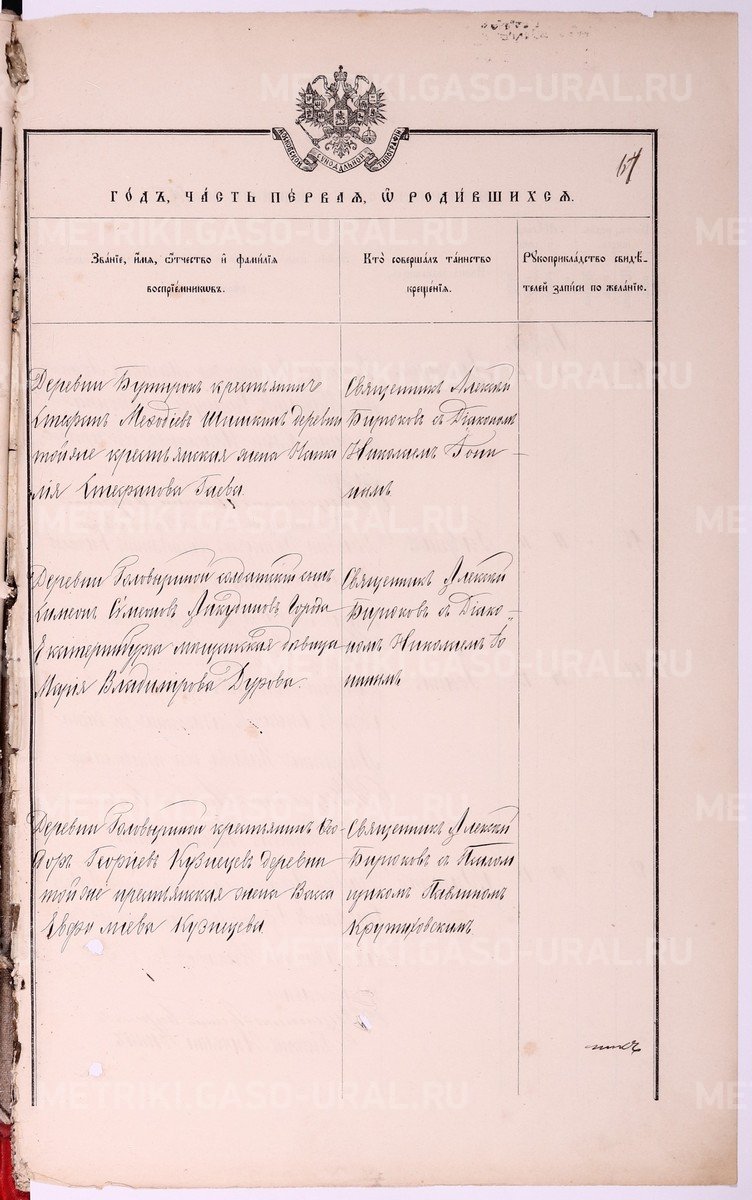 МОСКОВСКОЙ СѴНОДАЛЬНОЙ ТИПОГРАФІИ
64
ГО́ДЪ, ЧА́СТЬ ПЕ́РВАЯ, Ѽ РОДИ́ВШИХСЯ.
Зва́нїе, и҆́мя, ѻ҆́тчество и҆ фами́лїя
воспрїе́мникѡвъ.
Кто̀ соверша́лъ та́инство
креще́нїя.
Рꙋкоприкла́дство свидѣ́-
телей за́писи по жела́нїю.
Деревни Бутырокъ крестьянинъ
Стефанъ Меѳодіевъ Шишкинъ деревни
тойже крестьянская жена Ната
лія Стефанова Гаева.
Священникъ Алексій
Бирюковъ съ Діакономъ
Николаемъ Бони
нымъ
Деревни Головыриной солдатскій сынъ
Симеонъ Сѵмеоновъ Города
Екатеринбурга мѣщанская дѣвица
Марія Владимірова Дурова.
Священникъ Алексій
Бирюковъ съ Діако-
номъ Николаемъ Бо
нинымъ
Деревни Головыриной крестьянинъ Ѳео
доръ Георгіевъ Кузнецевъ деревни
тойже крестьянская жена Васса
Евфиміева Кузнецева.
Священникъ Алексій
Бирюковъ съ Псалом
щикомъ Павлиномъ
Крутиховскимъ
METRIKI.GASO-URAL.RU